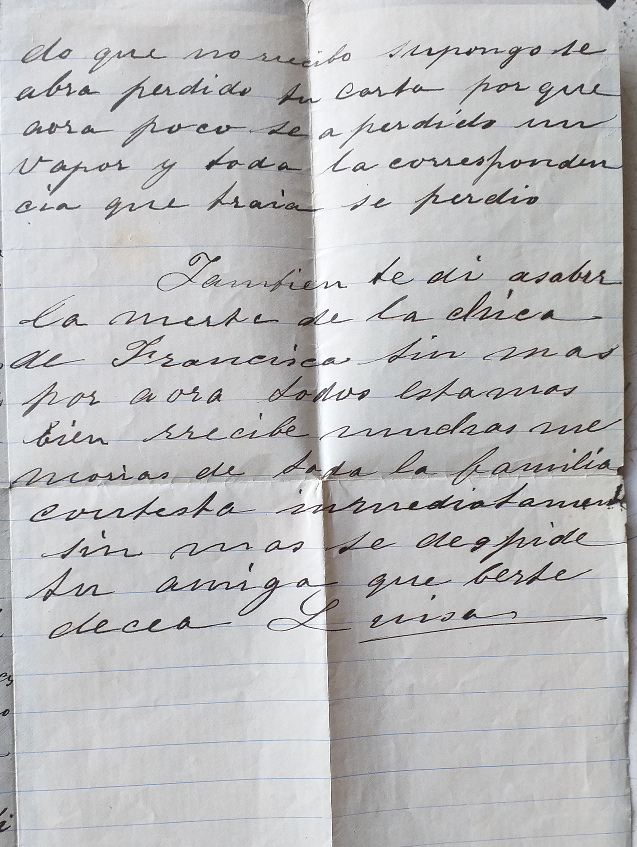 do que no recibo supongo se
abra perdido tu carta por que
aora poco se a perdido un
vapor y toda la corresponden
cia que traia se perdio
Tambien te di asaber
la merte de la chica
de Francisca sin mas
por aora todos estamos
bien rrecibe muchas me
morias de toda la familia
contesta inmediatament
sin mas se despide
tu amiga que berte
decea Luisa